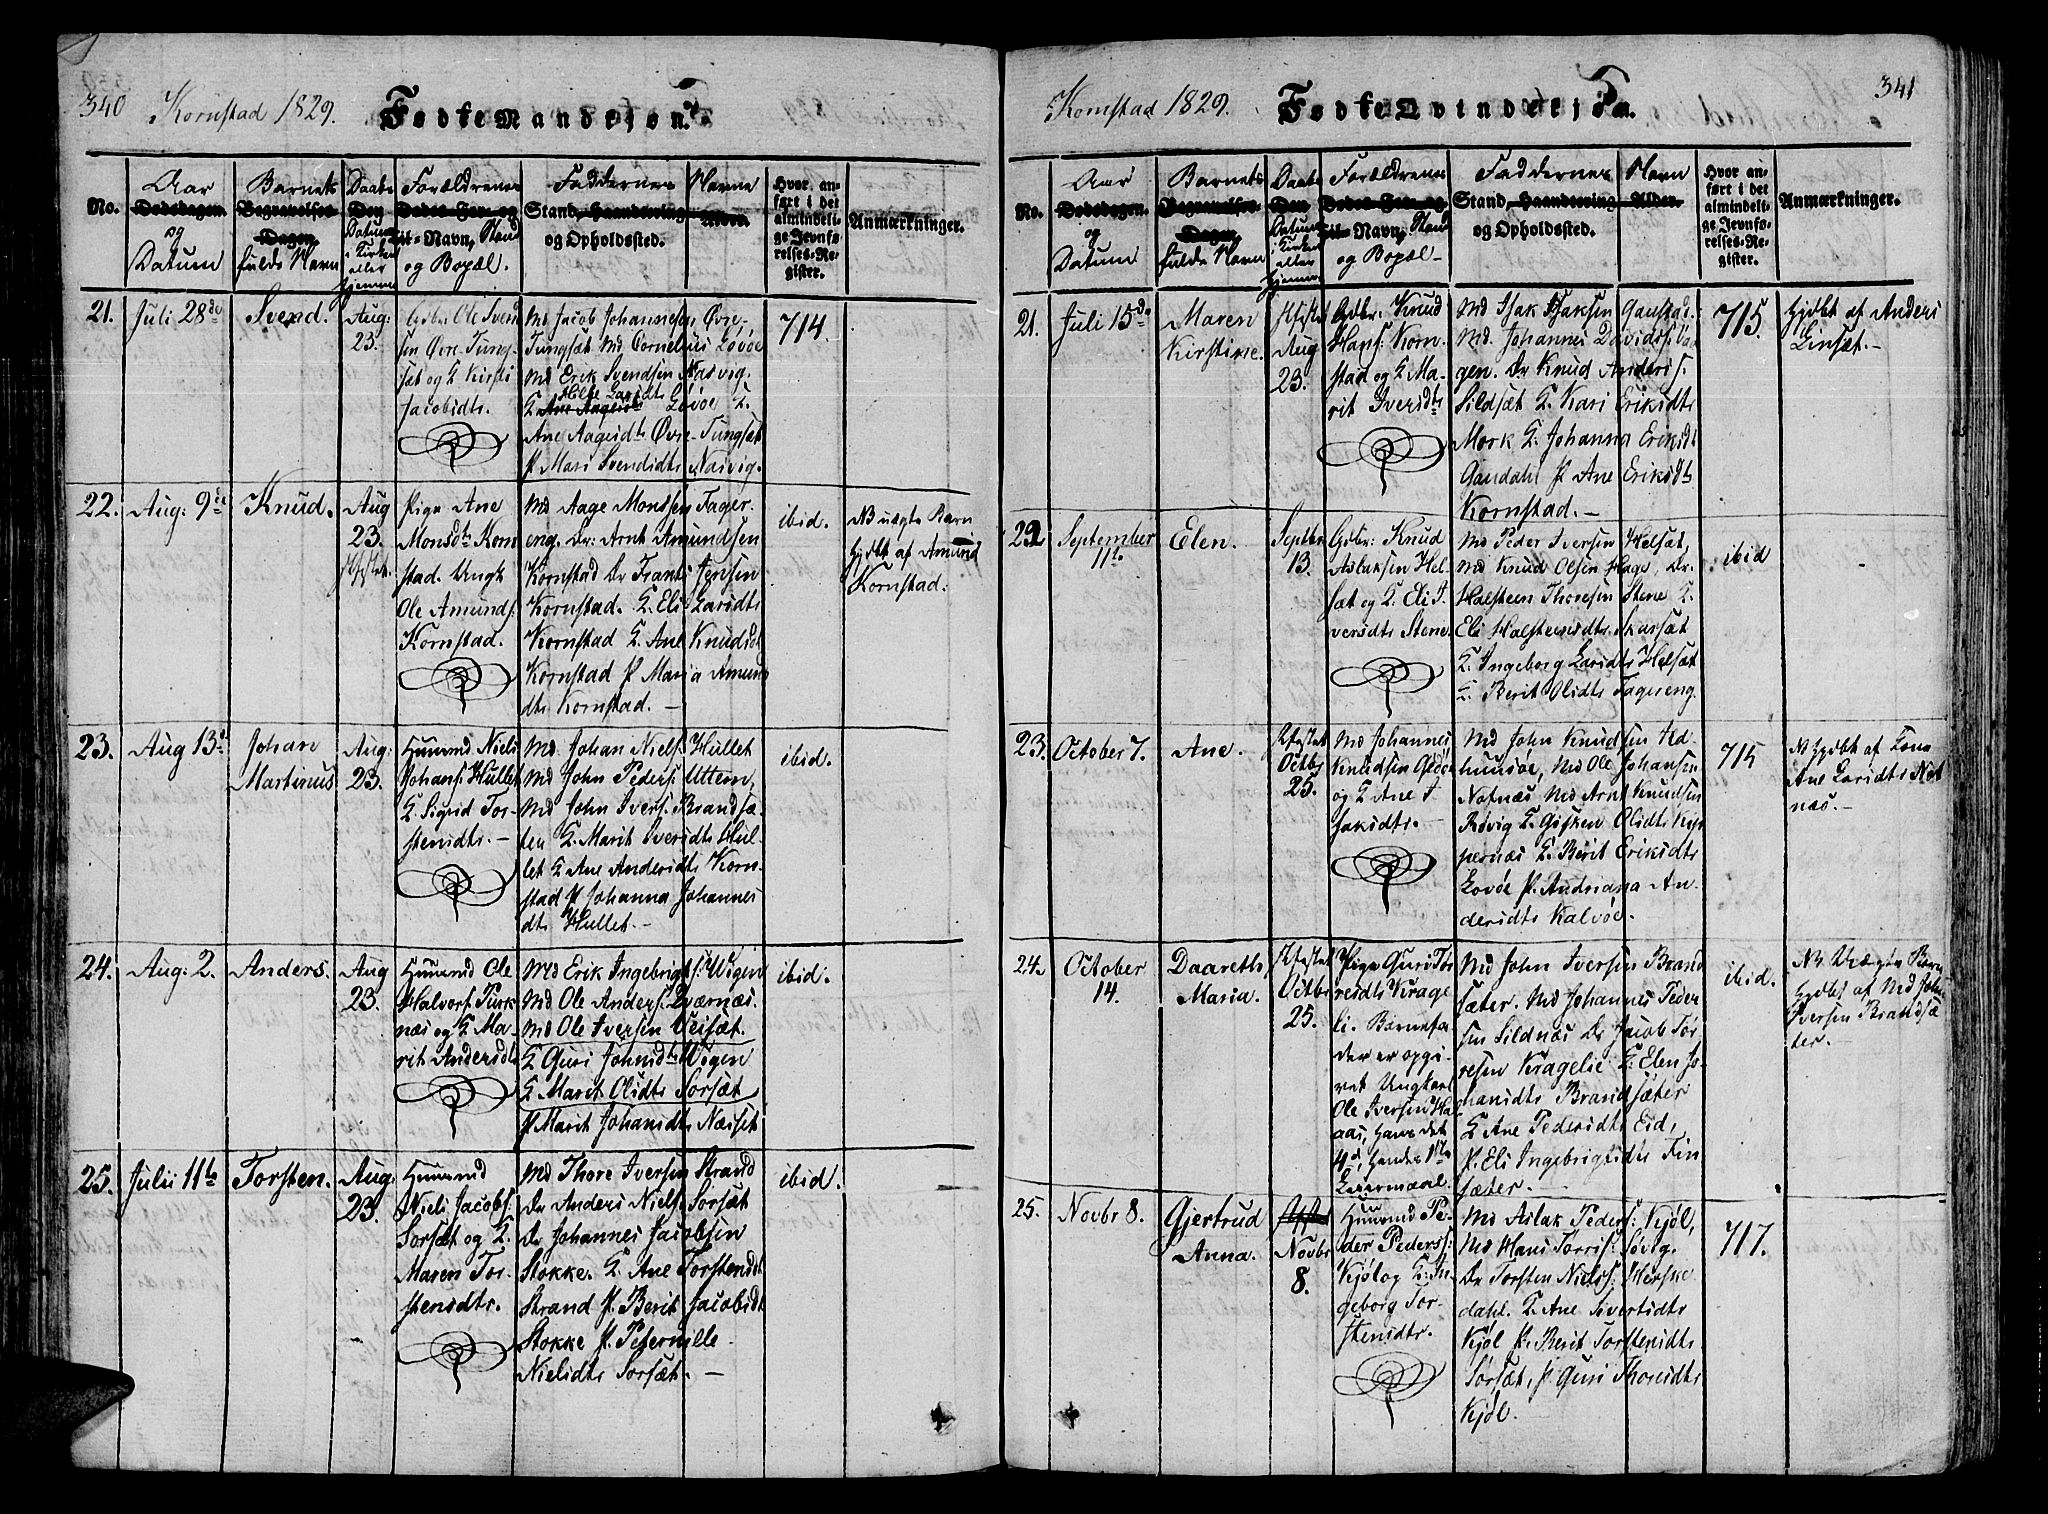 340 Kornstad 1829. Fødte Mandkjøn.
No.
Aar
og
Datum
Barnets
fulde Navn
Daabs
Datum
i Kirken
eller
hjemme
Forældrenes
Navn, Stand
og Bopæl.
Faddernes Navne
Stand
og Opholdssted.
Hvor an-
ført i det
almindeli-
ge Jevnfø-
relses-Re-
gister.
Anmærkninger.
21. Juli 28de
Svend.
Aug:
23.
Gdbr. Ole Svend
sen Øvre Tung
sæt og K Kirsti
Jacobsdtr.
Md Jacob Johannesen Øvre-
Tungsæt Md Cornelius Lovøe
Md Erik Svendsen Nasvig.
K Lovøe K.
Ane Aagesdtr Øvre-Tungsæt
P Mari Svendsdtr Nasvig.
714
22. Aug: 9de
Knud.
Aug
23.
Pige Ane
Monsdtr Korn
stad. Ungk
Ole Amunds.
Kornstad.
Md Aage Monssen Fager
eng. Dr: Arnt Amundsen
Kornstad Dr Frants Jensen
Kornstad. K. Eli Larsdtr
Kornstad K Ane Knudsdtr
Kornstad P Maria Amunds
dtr Kornstad. –
ibid.
NB uægte Barn
hjdbt af Amund
Kornstad.
23. Aug 13de
Johan
Martinus
Aug:
23.
Huusmd Niels
Johans. Hullet
K. Sigrid Tor-
stensdtr. –
Md. Johan Niels. Hullet
Md John Peders. Uttem,
Md John Ivers. Brandsæ-
ten K. Marit Iversdtr Hul-
let K Ane Andersdtr Korn-
stad P Johanna Johannes
dtr Hullet. –
ibid.
24. Aug: 2.
Anders.
Aug
23.
Huusmd Ole
Halvors.
næs og K Ma-
rit Andersdtr
Md Erik Ingebrigts: Wigen
Md Ole Anders. Qværnæs.
Md Ole Iversen Veisæt.
K Guri Johnsdtr Wigen
K Marit Olsdtr Sorsæt
P Marit Johansdtr Næsset
ibid.
25. Julii 11te
Torsten.
Aug:
23.
Huusmd
Niels Jacobs.
Sorsæt og K.
Maren Tor-
stensdtr.
Md Thore Iversen Strand
Dr Anders Niels. Sorsæt
Dr Johannes Jacobsen
Stokke. K. Ane Torstensdtr
Strand P. Berit Jacobsdtr
Stokke P. Peternille
Nielsdtr Sorsæt. –
ibid.
Kornstad 1829. Fødte Qvindekjøn. 341
No.
Aar
og
Datum
Barnets
fulde Navn
Daabs
Datum
i Kirken
eller
hjemme
Forældrenes
Navn, Stand
og Bopæl –
Faddernes Navn
Stand
og Opholdssted.
Hvor an-
ført i det
almindeli-
ge Jevnfø-
relses-Re-
gister.
Anmærkninger.
21. Juli 15de
Maren
Kirstine.
Aug
23.
Gdbr. Knud
Hans: Korn-
stad og K Ma-
rit Iversdtr
Md Isak Isaksen Gaustad
Md. Johannes Davids. Va-
gen. Dr Knud Anders.
Sildsæt K. Kari Eriksdtr
Mork K. Johanna Eriksdtr
Gaudahl P Ane Eriksdtr
Kornstad. –
715.
hjdbt af Anders
Linsæt. –
22 September
11te
Elen.
Septbr
13.
Gdbr: Knud
Aslaksen Hel-
sæt og K: Eli I-
versdtr Stene
Md Peder Iversen Helsæt,
Md Knud Olsen Hage, Dr.
Halsteen Thoresen Stene K.
Eli Halsteensdtr. Skarsæt
K. Ingeborg Larsdtr Helsæt
K. Berit Olsdtr Fagereng.
ibid
23. October 7.
Ane.
Octbr
25.
Md Johannes
Knudsen
og K Ane I-
saksdtr. –
Md John Knudsen Ad-
huusøe, Md Ole Johansen
Notnæs Md Arnt Knudsen
Røvig K Gisken Olsdtr
pernæs K. Berit Eriksdtr
Lovøe P. Andriana An-
dersdtr Kalvøe.
715
NB hjdbt af Kone
Ane Larsdtr Not
næs. –
24. October
14.
Daareth
Maria.
Octbr
25.
Pige Guri Tor
resdtr Krage
li. Barnefa-
der er opgi-
vet Ungkarl
Ole Iversen
Md John Iversen Brand
sæter. Md Johannes Peder
sen Sildnæs Dr Jacob Tor
resen Kragelie K: Elen Jo-
hansdtr Brandsæter
K Ane Pedersdtr Eid,
P. Eli Ingebrigtsdtr Fin
sæter. –
ibid.
NB Uægte Barn
hjdbt af Md John
Iversen Brandsæ
ter. –
25. Novbr 8.
Gjertrud
Anna.
Novbr
8.
Huusmd Pe-
der Peders:
Kjøl og K: In-
geborg Tor-
stensdtr.
Md Aslak Peders: Kjøl,
Md Hans Torris: Søvig.
Dr Torsten Niels: Herske-
dahl. K. Ane Sivertsdtr
Kjøl P. Berit Torstensdtr
Sørsæt, P Guri Thoresdtr
Kjøl. –
717.